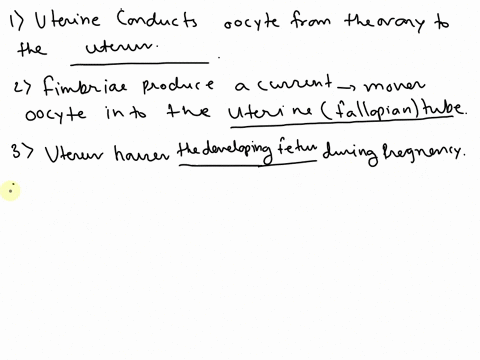 1) Uterine Conducts oocyte from the ovary to
the uterus.
2) fimbriae produce a current → moves
oocyte in to the uterine (fallopian) tube.
3) Uterus houses the developing fetus during pregnancy.